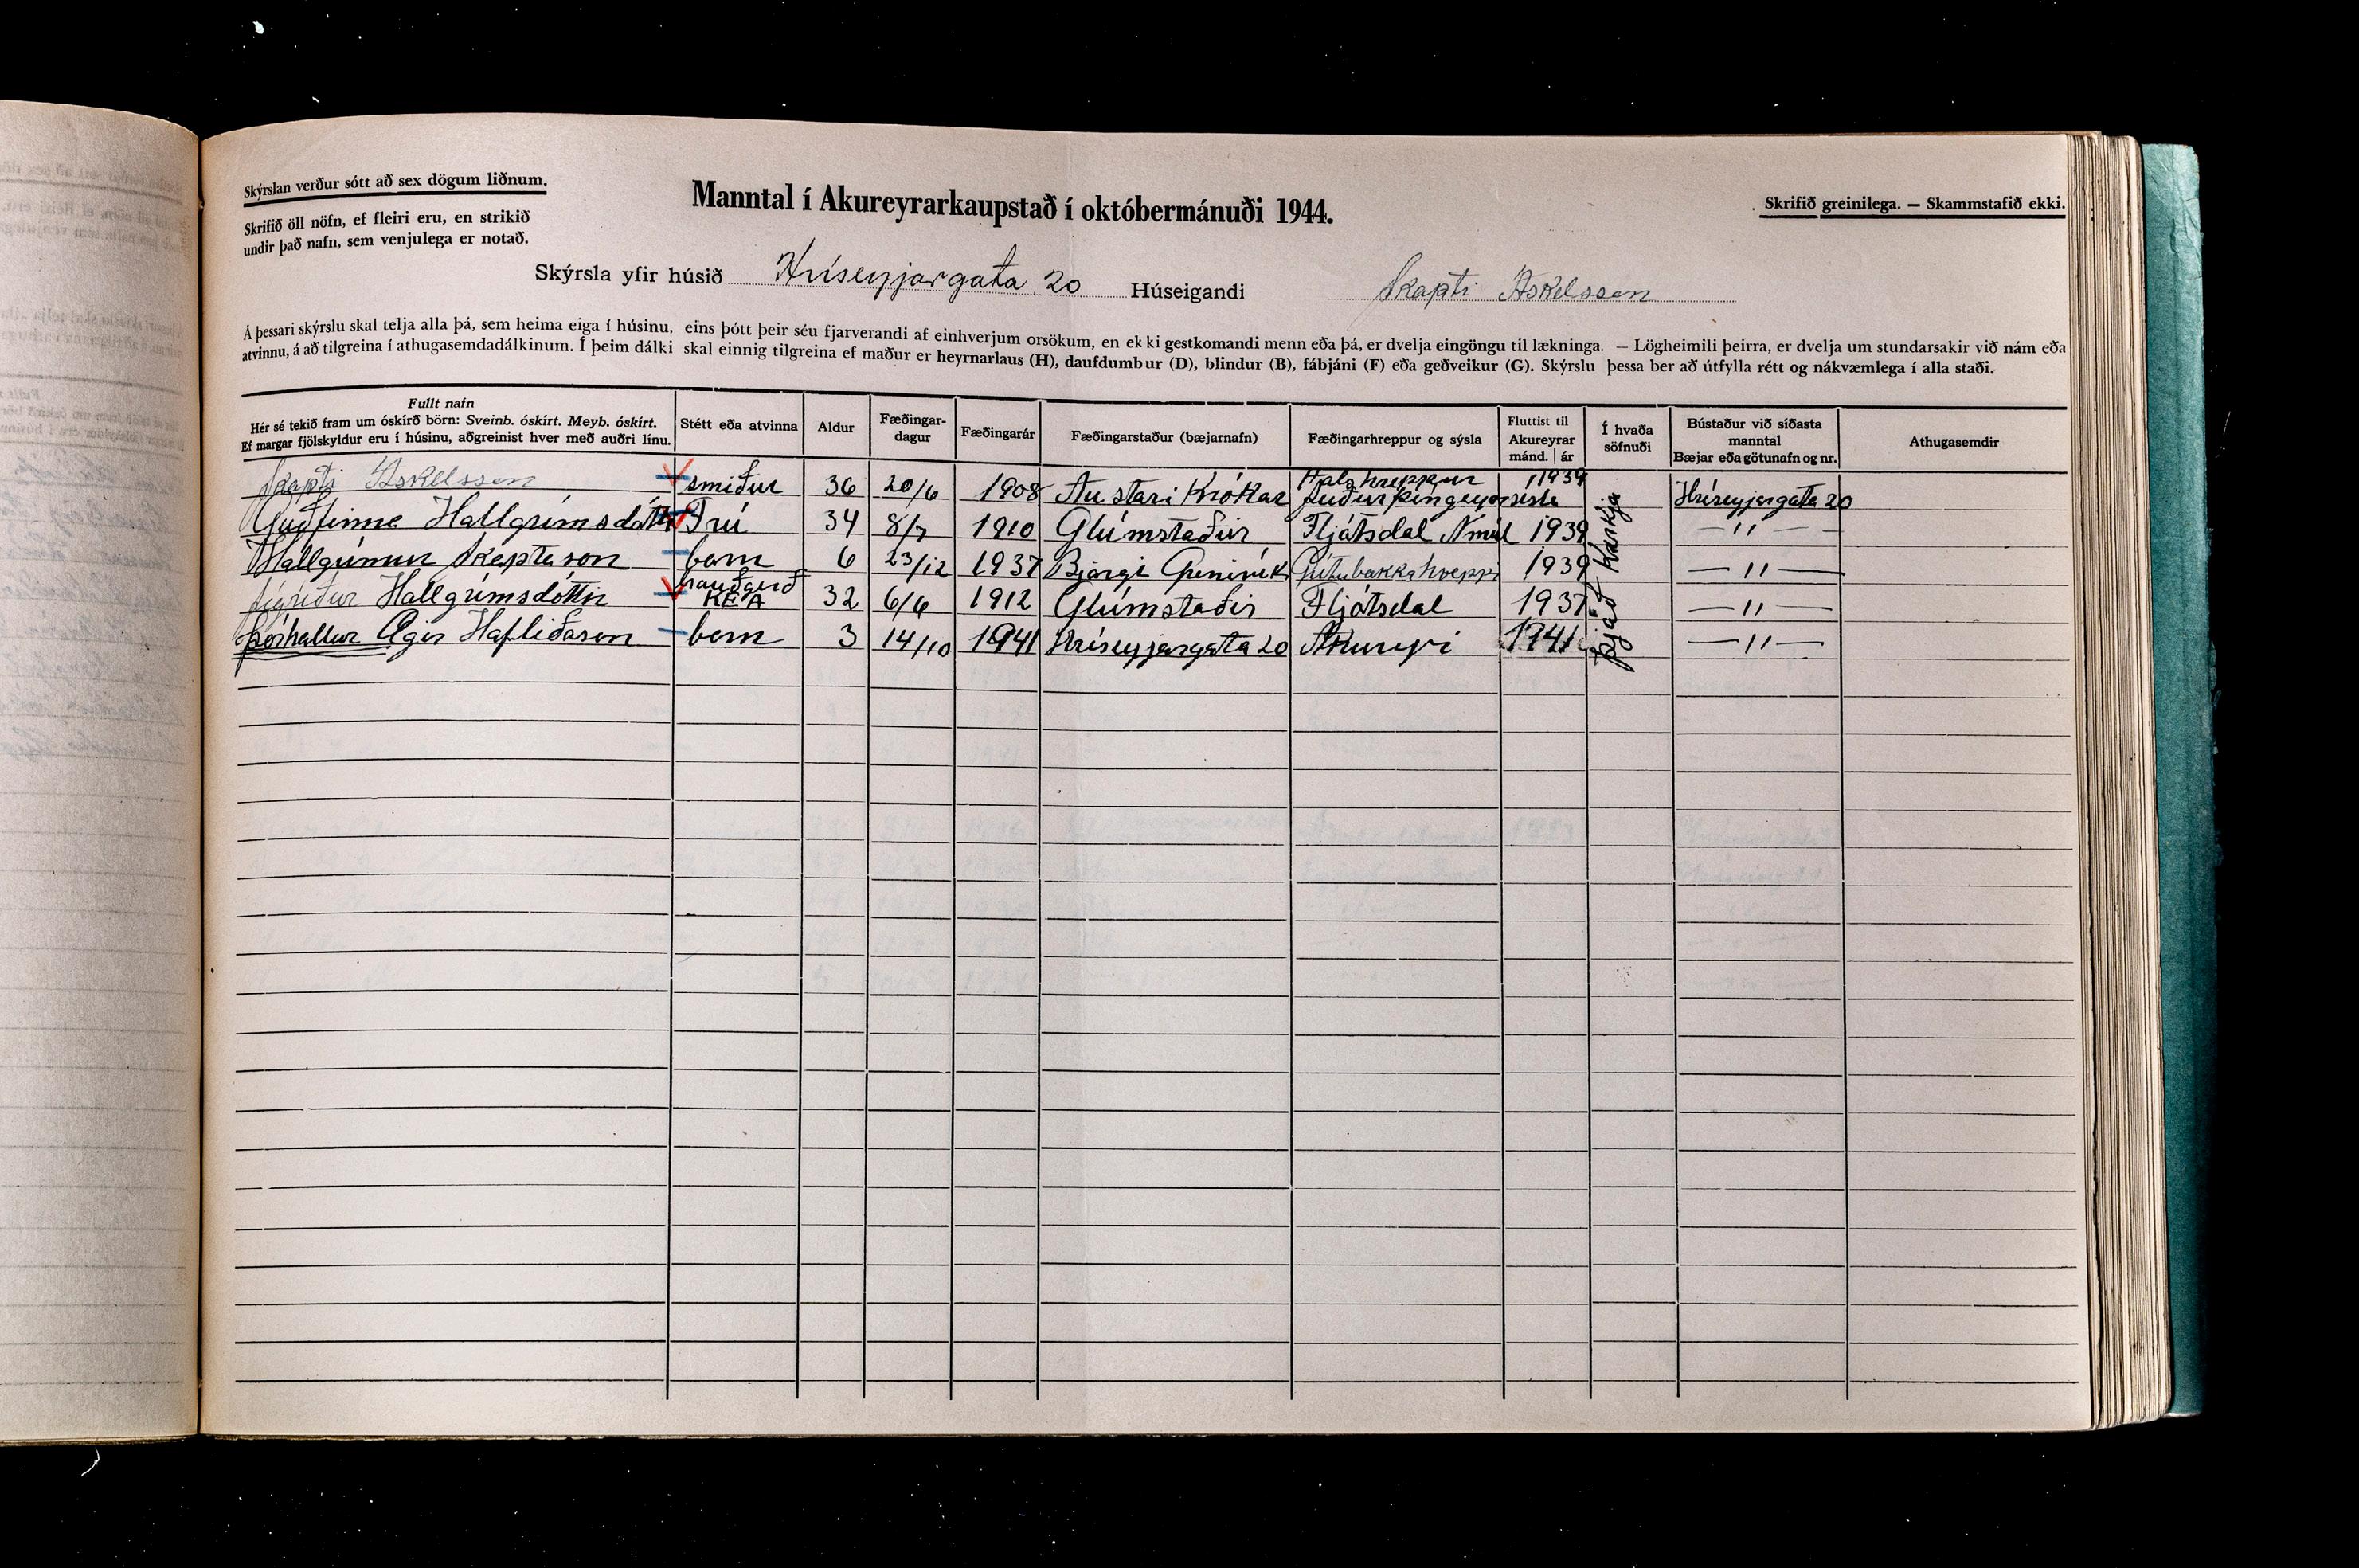 Skýrslan verður sótt að sex dögum liðnum.
Skrifið öll nöfn, ef fleiri eru, en strikið
undir það nafn, sem venjulega er notað.
Manntal í Akureyrarkaupstað í októbermánuði 1944.
Skrifið greinilega. — Skammstafið ekki.
Skýrsla yfir húsið Hríseyjargata 20 Húseigandi Skapti Áskelsson
Á þessari skýrslu skal telja alla þá, sem heima eiga í húsinu, eins þótt þeir séu fjarverandi af einhverjum orsökum, en ekki gestkomandi menn eða þá, er dvelja eingöngu til lækninga. — Lögheimili þeirra, er dvelja um stundarsakir við nám eða
atvinnu, á að tilgreina í athugasemdadálkinum. Í þeim dálki skal einnig tilgreina ef maður er heyrnarlaus (H), daufdumbur (D), blindur (B), fábjáni (F) eða geðveikur (G). Skýrslu þessa ber að útfylla rétt og nákvæmlega í alla staði.
Fullt nafn
Hér sé tekið fram um óskírð börn: Sveinb. óskírt. Meyb. óskírt.
Ef margar fjölskyldur eru í húsinu, aðgreinist hver með auðri línu.
Stétt eða atvinna
Aldur
Fæðingar-
dagur
Fæðingarár
Fæðingarstaður (bæjarnafn)
Fæðingarhreppur og sýsla
Fluttist til
Akureyrar
mánd. | ár
Í hvaða
söfnuði
Bústaður við síðasta
manntal
Bæjar eða götunafn og nr.
Athugasemdir
Skapti Áskelsson smiður 36 20/6 1908 Austari Krókar Hálshreppur Suðurþingeyjarsísla 1939 Hríseyjargata 20
Guðfinna Hallgrímsdóttir Frú 34 8/7 1910 Glúmstaðir Fljótsdal Nmúl 1939 —"—
Hallgrímur Skaptason barn 6 23/12 1937 Bjargi Grenivík Grítubakkahreppi 1939 —"—
Sigríður Hallgrímsdóttir KEA 32 6/6 1912 Glúmstaðir Fljótsdal 1937 —"—
Þórhallur Ægir Hafliðason barn 3 14/10 1941 Hríseyjargata 20 Akureyri 1941 —"—
Þjóð Kirkja